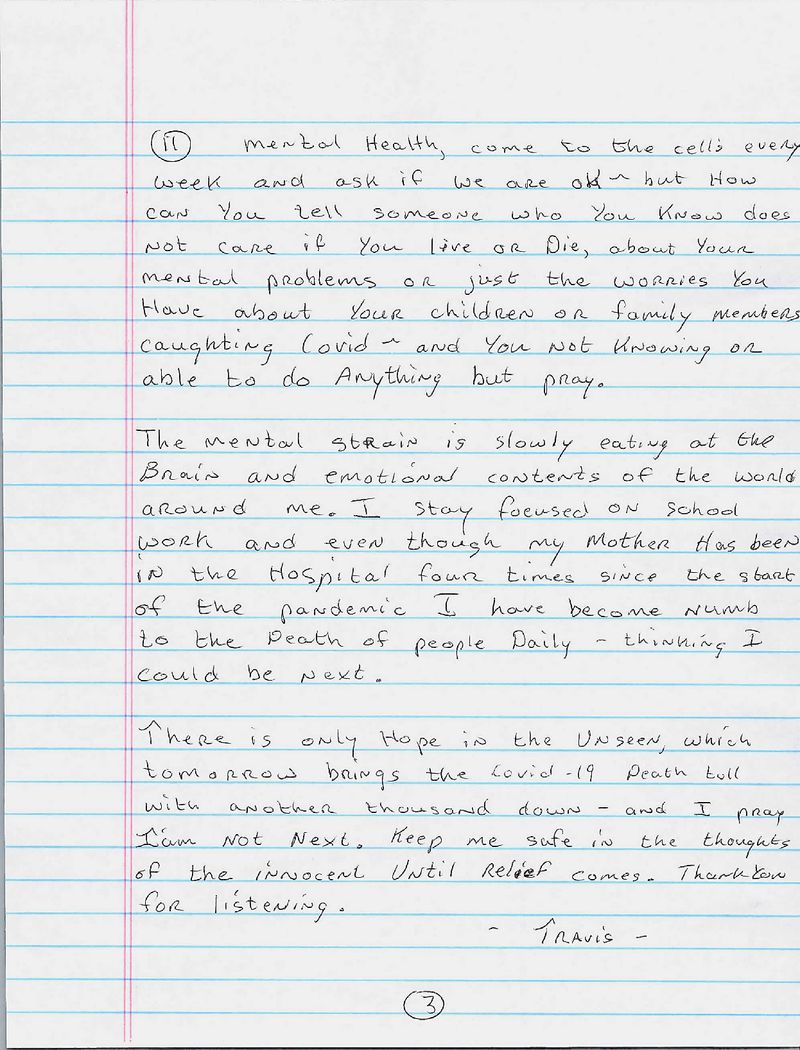 11 mental Health, come to the cells every
week and ask if we are ok ~ but How
can You tell someone who You Know does
Not care if You live or Die, about Your
mental problems or just the worries You
Have about Your children or family members
caughting Covid ~ and You Not Knowing or
able to do Anything but pray.
The mental strain is slowly eating at the
Brain and emotional contents of the world
around me. I stay focused on school
work and even though my Mother Has been
in the Hospital four times since the start
of the pandemic I have become Numb
to the Death of people Daily - thinking I
could be Next.
There is only Hope in the Unseen, which
tomorrow brings the Covid-19 Death toll
with another thousand down - and I pray
I'am Not Next. Keep me safe in the thoughts
of the innocent Until Relief comes. Thank You
for listening.
- Travis -
3